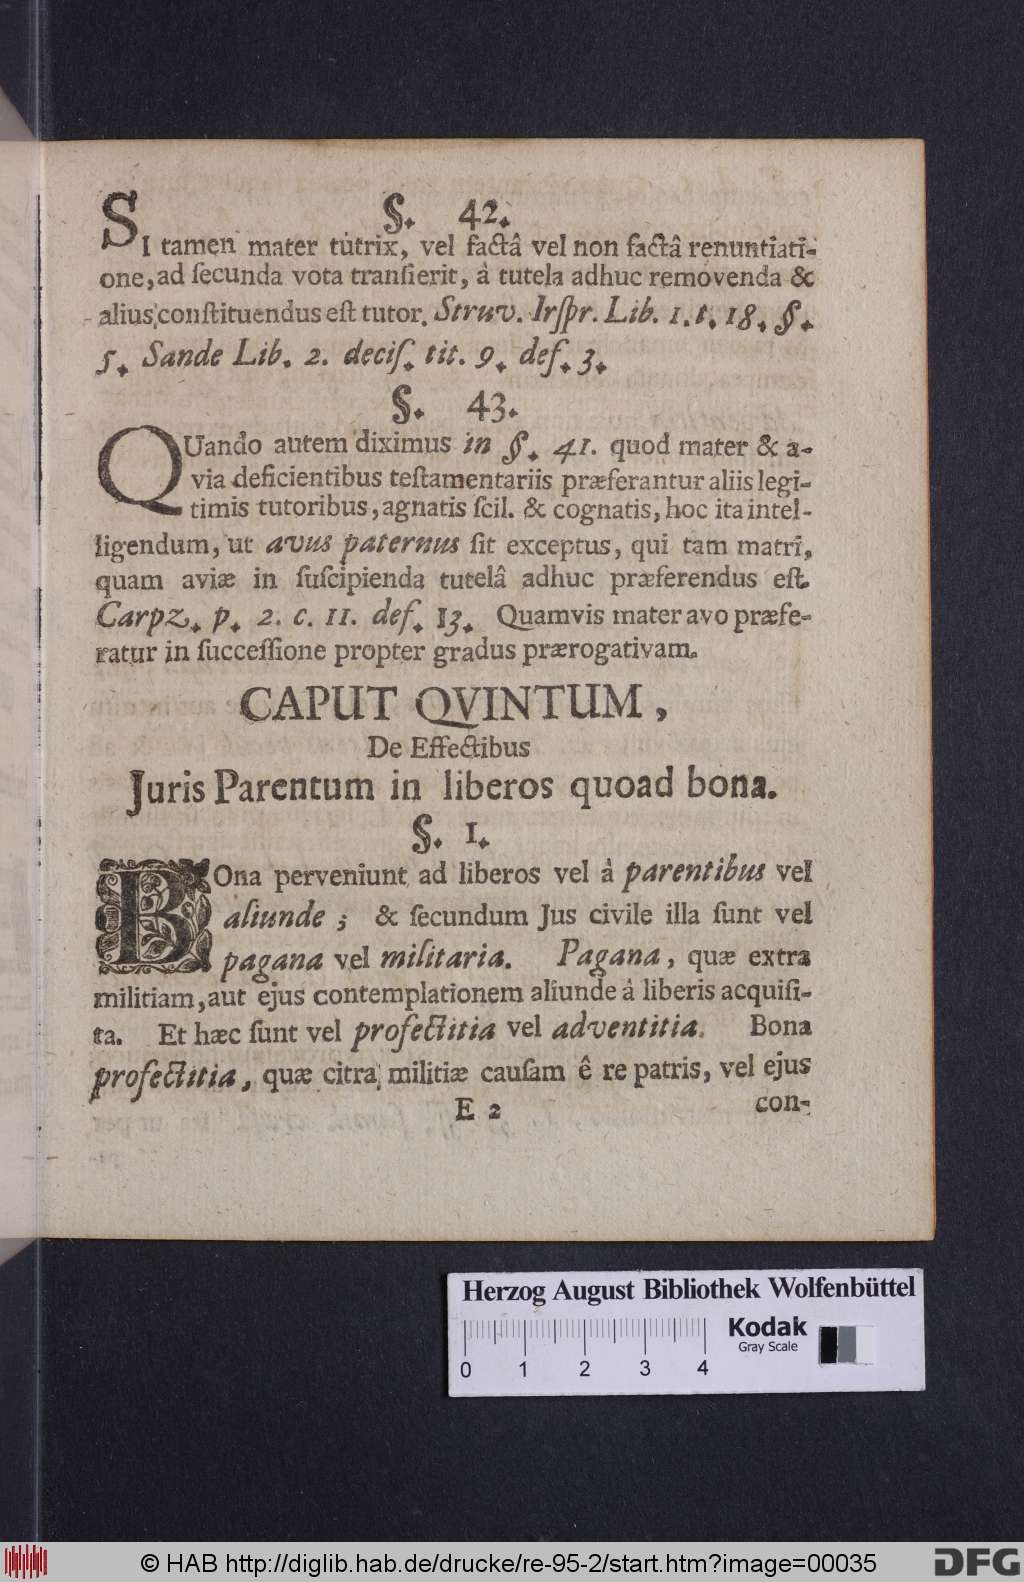 §. 42.
SI tamen mater tutrix, vel factâ vel non factâ renuntiati-
one, ad ſecunda vota tranſierit, à tutela adhuc removenda &
alius conſtituendus eſt tutor. Struv. Irſpr. Lib. 1. t. 18. §.
5. Sande Lib. 2. deciſ. tit. 9. def. 3.
§. 43.
QUando autem diximus in §. 41. quod mater & a-
via deficientibus teſtamentariis præferantur aliis legi-
timis tutoribus, agnatis ſcil. & cognatis, hoc ita intel-
ligendum, ut avus paternus ſit exceptus, qui tam matri,
quam aviæ in ſuſcipienda tutelâ adhuc præferendus eſt.
Carpz. p. 2. c. 11. def. 13. Quamvis mater avo præfe-
ratur in ſucceſſione propter gradus prærogativam.
CAPUT QVINTUM,
De Effectibus
Juris Parentum in liberos quoad bona.
§. 1.
BOna perveniunt ad liberos vel à parentibus vel
aliunde; & ſecundum Jus civile illa ſunt vel
pagana vel militaria. Pagana, quæ extra
militiam, aut ejus contemplationem aliunde â liberis acquiſi-
ta. Et hæc ſunt vel profectitia vel adventitia. Bona
profectitia, quæ citra militiæ cauſam ê re patris, vel ejus
E 2 con-
Herzog August Bibliothek Wolfenbüttel
Kodak
Gray Scale
0 1 2 3 4
© HAB http://diglib.hab.de/drucke/re-95-2/start.htm?image=00035
DFG